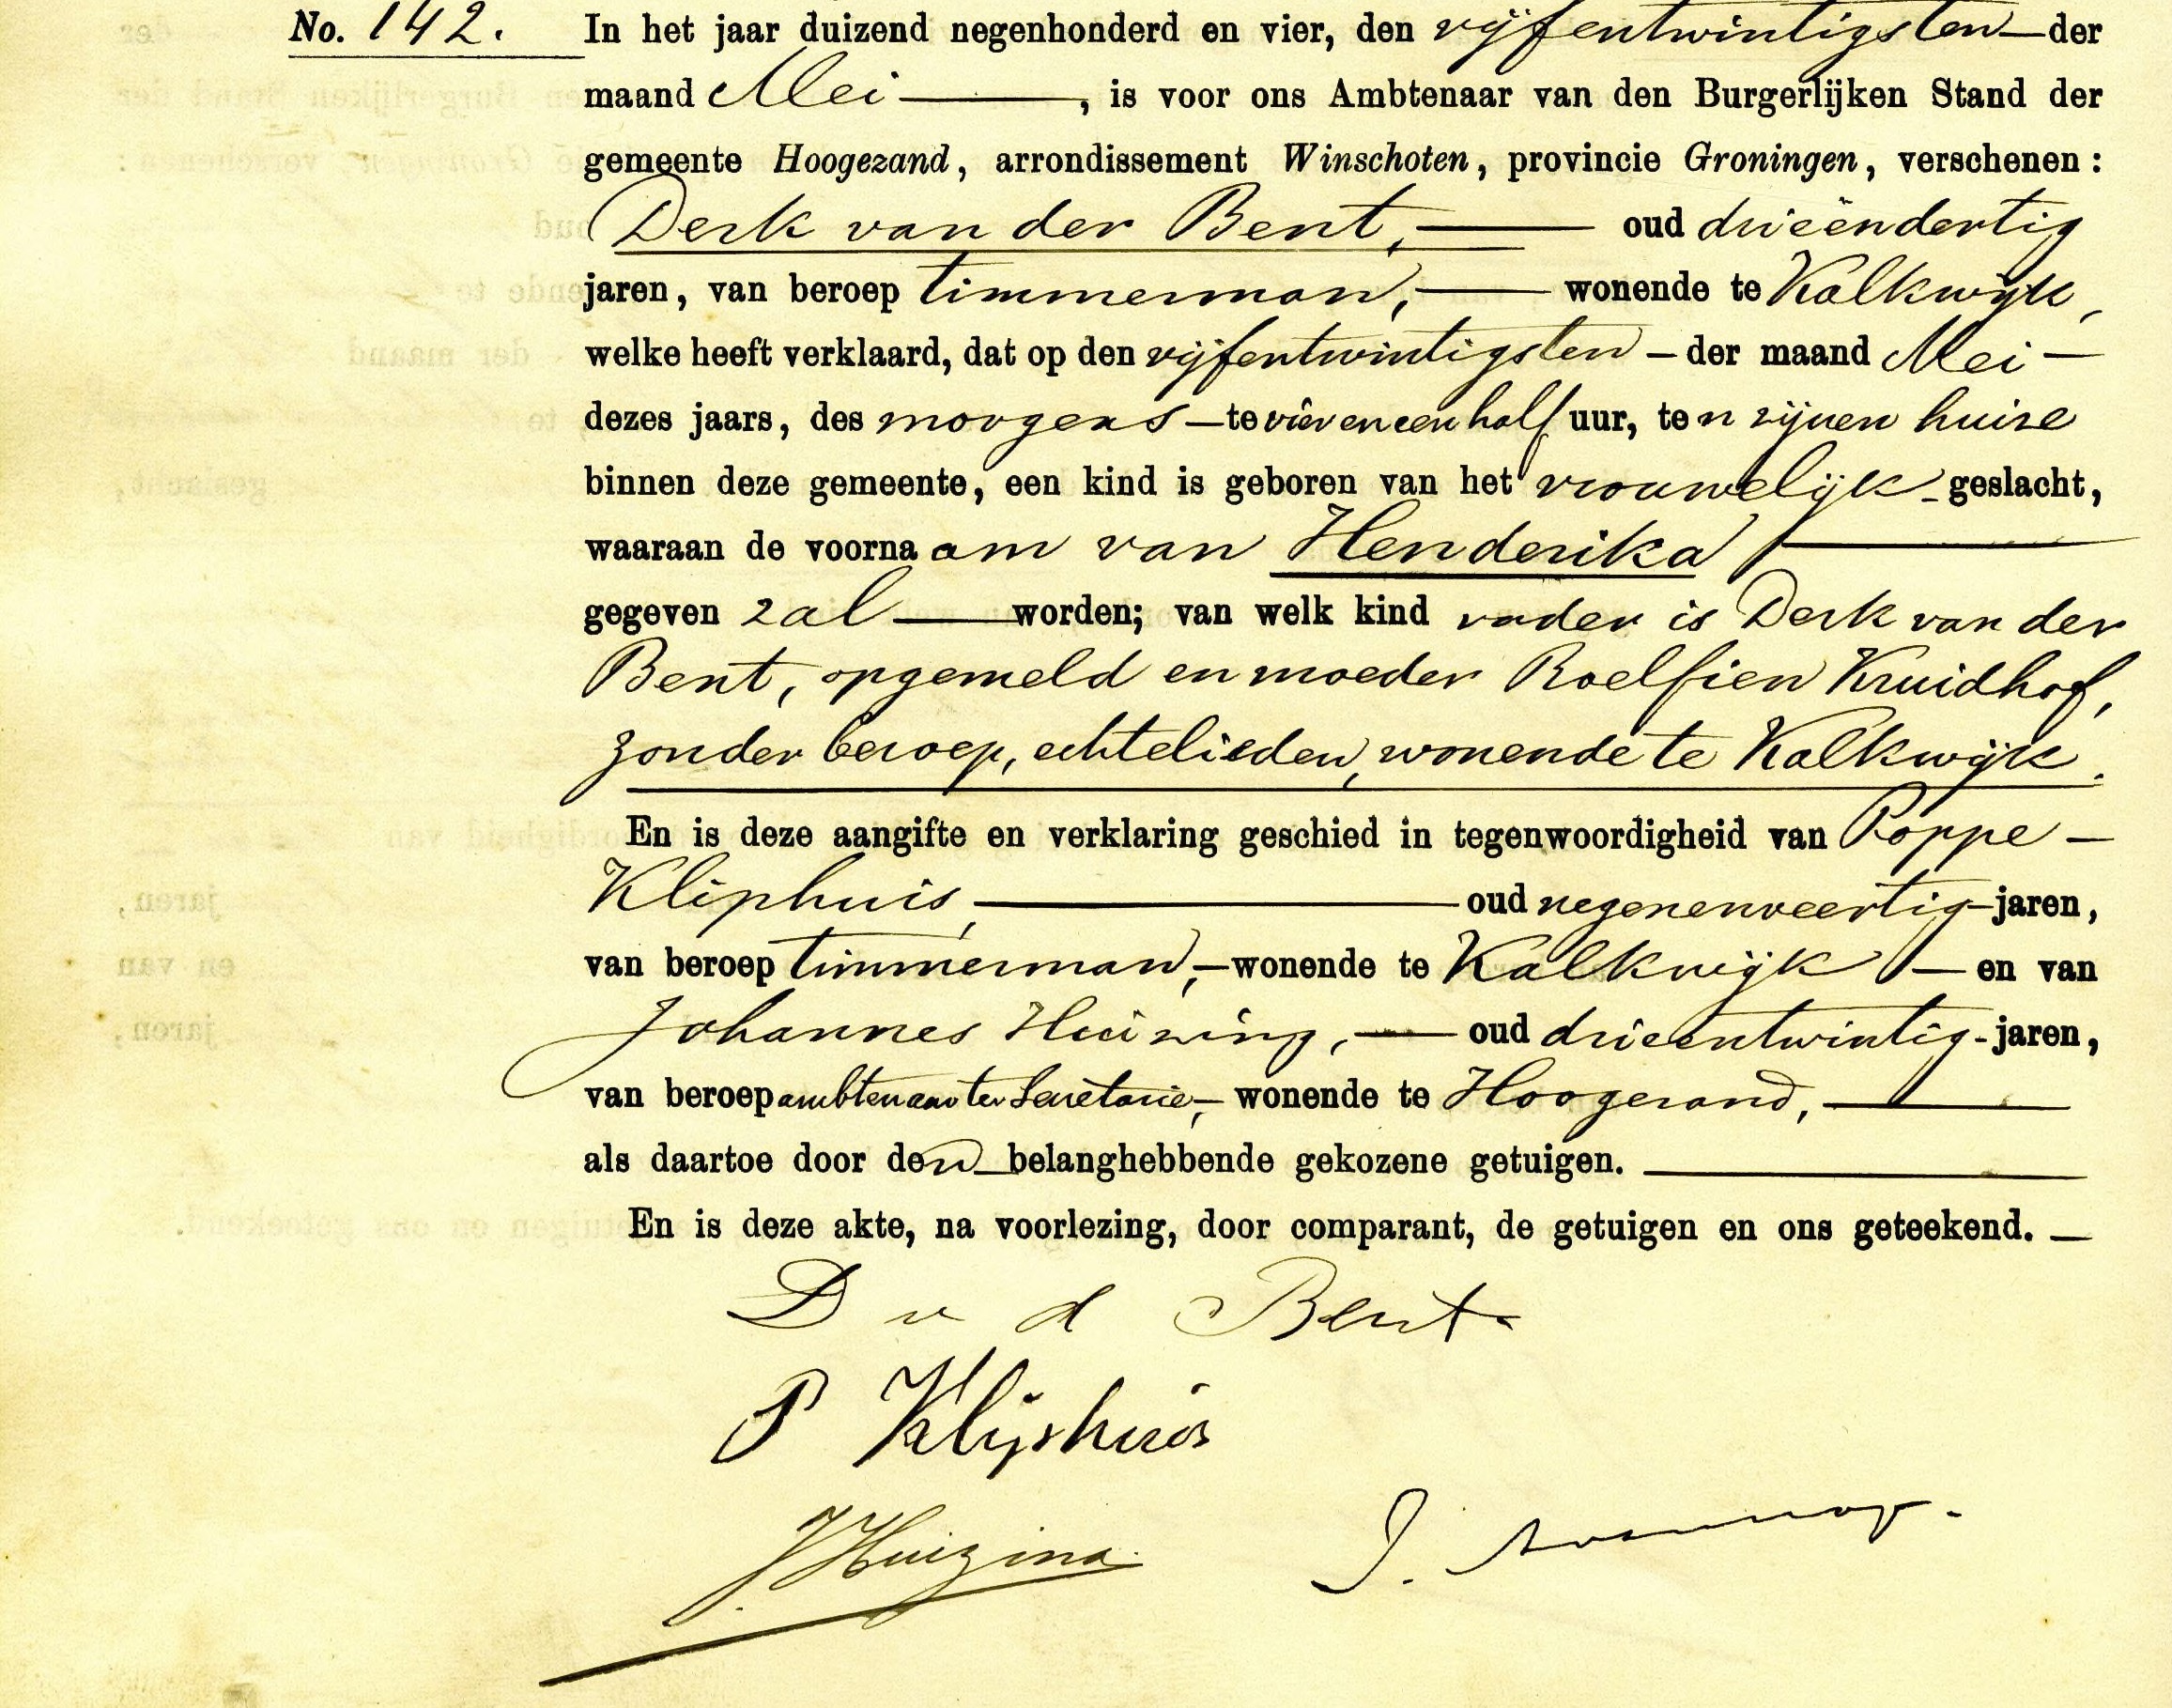 No. 142. In het jaar duizend negenhonderd en vier, den vijfentwintigsten der
maand Mei, is voor ons Ambtenaar van den Burgerlijken Stand der
gemeente Hoogezand, arrondissement Winschoten, provincie Groningen, verschenen:
Derk van der Bent, oud drieëndertig
jaren, van beroep timmerman, wonende te Kalkwijk,
welke heeft verklaard, dat op den vijfentwintigsten der maand Mei
dezes jaars, des morgens te vier en een half uur, ten zijnen huize
binnen deze gemeente, een kind is geboren van het vrouwelijk geslacht,
waaraan de voornaam van Henderika
gegeven zal worden; van welk kind vader is Derk van der
Bent, opgemeld en moeder Roelfien Kruidhof,
zonder beroep, echtelieden, wonende te Kalkwijk.
En is deze aangifte en verklaring geschied in tegenwoordigheid van Poppe
Kliphuis, oud negenenveertig jaren,
van beroep timmerman, wonende te Kalkwijk en van
Johannes Huizing, oud drieentwintig jaren,
van beroep ambtenaar ter Secretarie, wonende te Hoogezand,
als daartoe door den belanghebbende gekozene getuigen.
En is deze akte, na voorlezing, door comparant, de getuigen en ons geteekend.
D v d Bent
P Kliphuis
J Huizing
J.